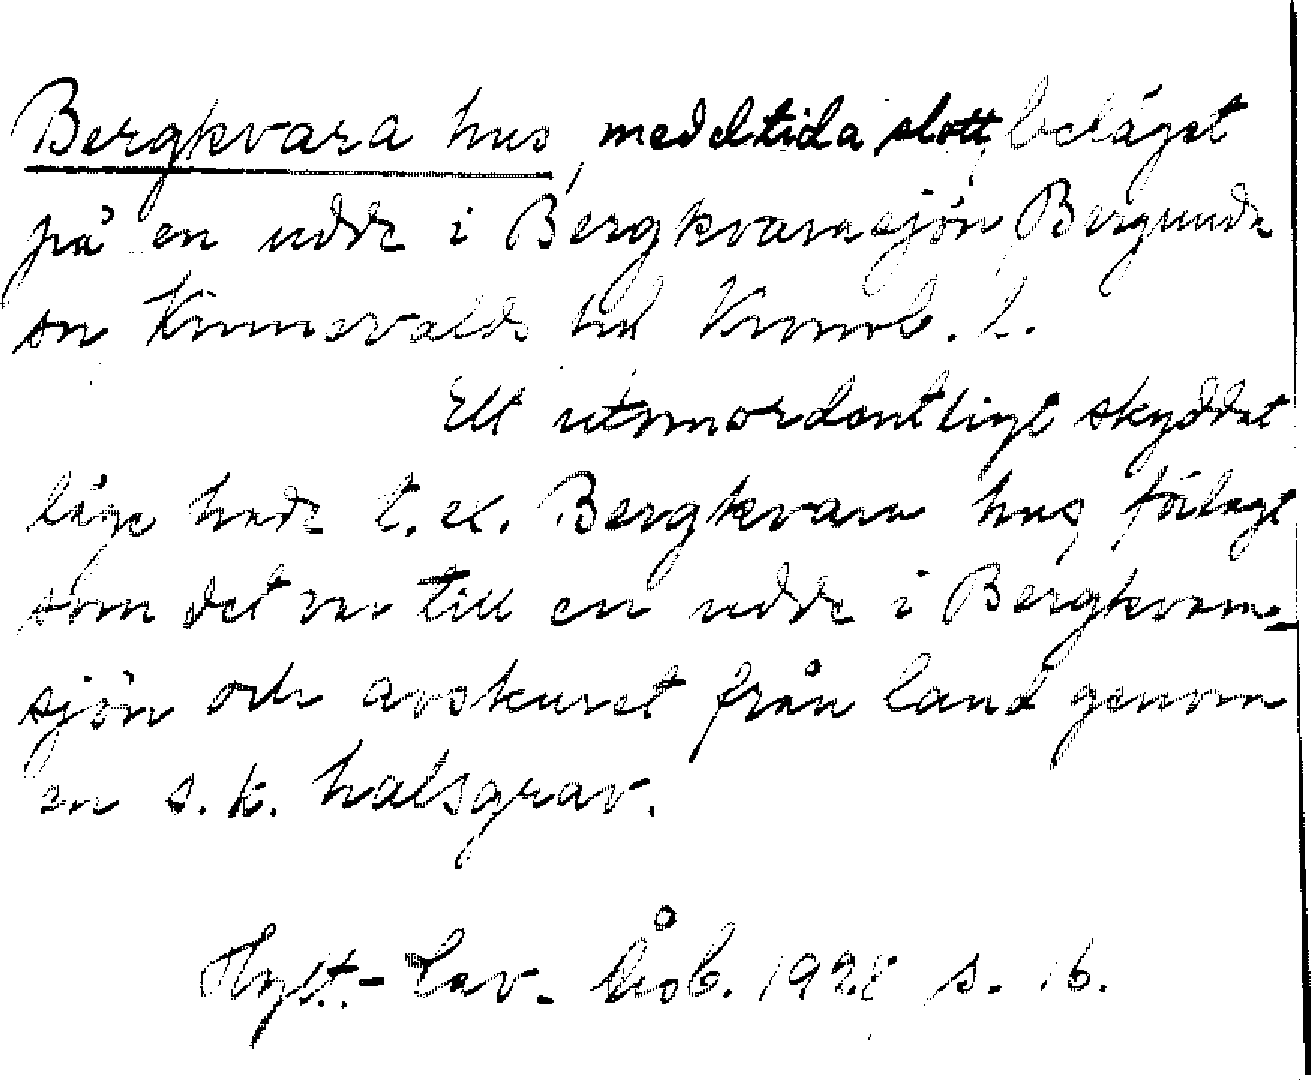 Bergkvara hus, medeltida slott, beläget
på en udde i Bergkvarasjön, Bergunda
sn Kinnevalds hd Kronob. l.
Ett utomordentligt skyddat
läge hade t.ex. Bergkvara hus, förlagt
som det var till en udde i Bergkvara-
sjön och avskuret från land genom
en s.k. halsgrav.
Hylt.-Cav. Åsb. 1928 s. 16.